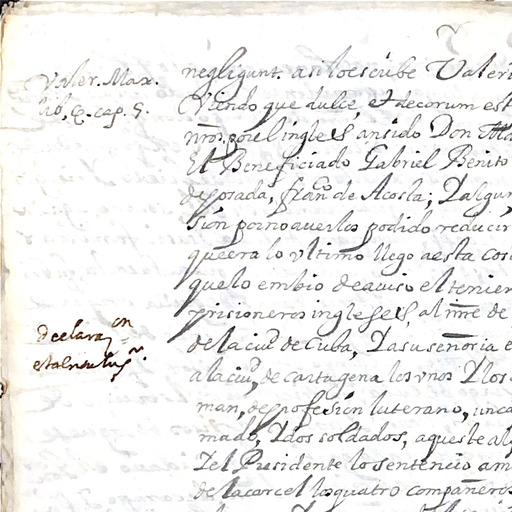 Valer. Max.
lib, 6. cap. 5.
negligunt. asi lo escribe Valeri
Viendo que dulce, et decorum est
nros. por el ingles, an sido Don
El Beneficiado Gabriel Benito
de posada, fran.co de Acosta; Y algun
sion por no auerlos podido reducir
que era lo vltimo llego a esta cos
que lo embio de auiso el tenien
prisioneros ingleses, al nre de
declaraon
de la ciud de Cuba, Y a su señoria e
a la ciud, de cartagena los vnos Y los
man, de profesion luterano, un ca
mado, Y dos soldados, a queste al
Y el Presidente lo sentencio a m
de la carcel los quatro compañeros